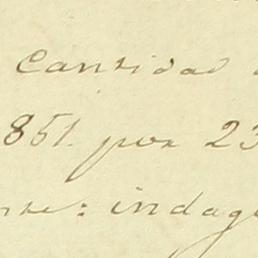 Cantidad
851. por 23
nte: indag